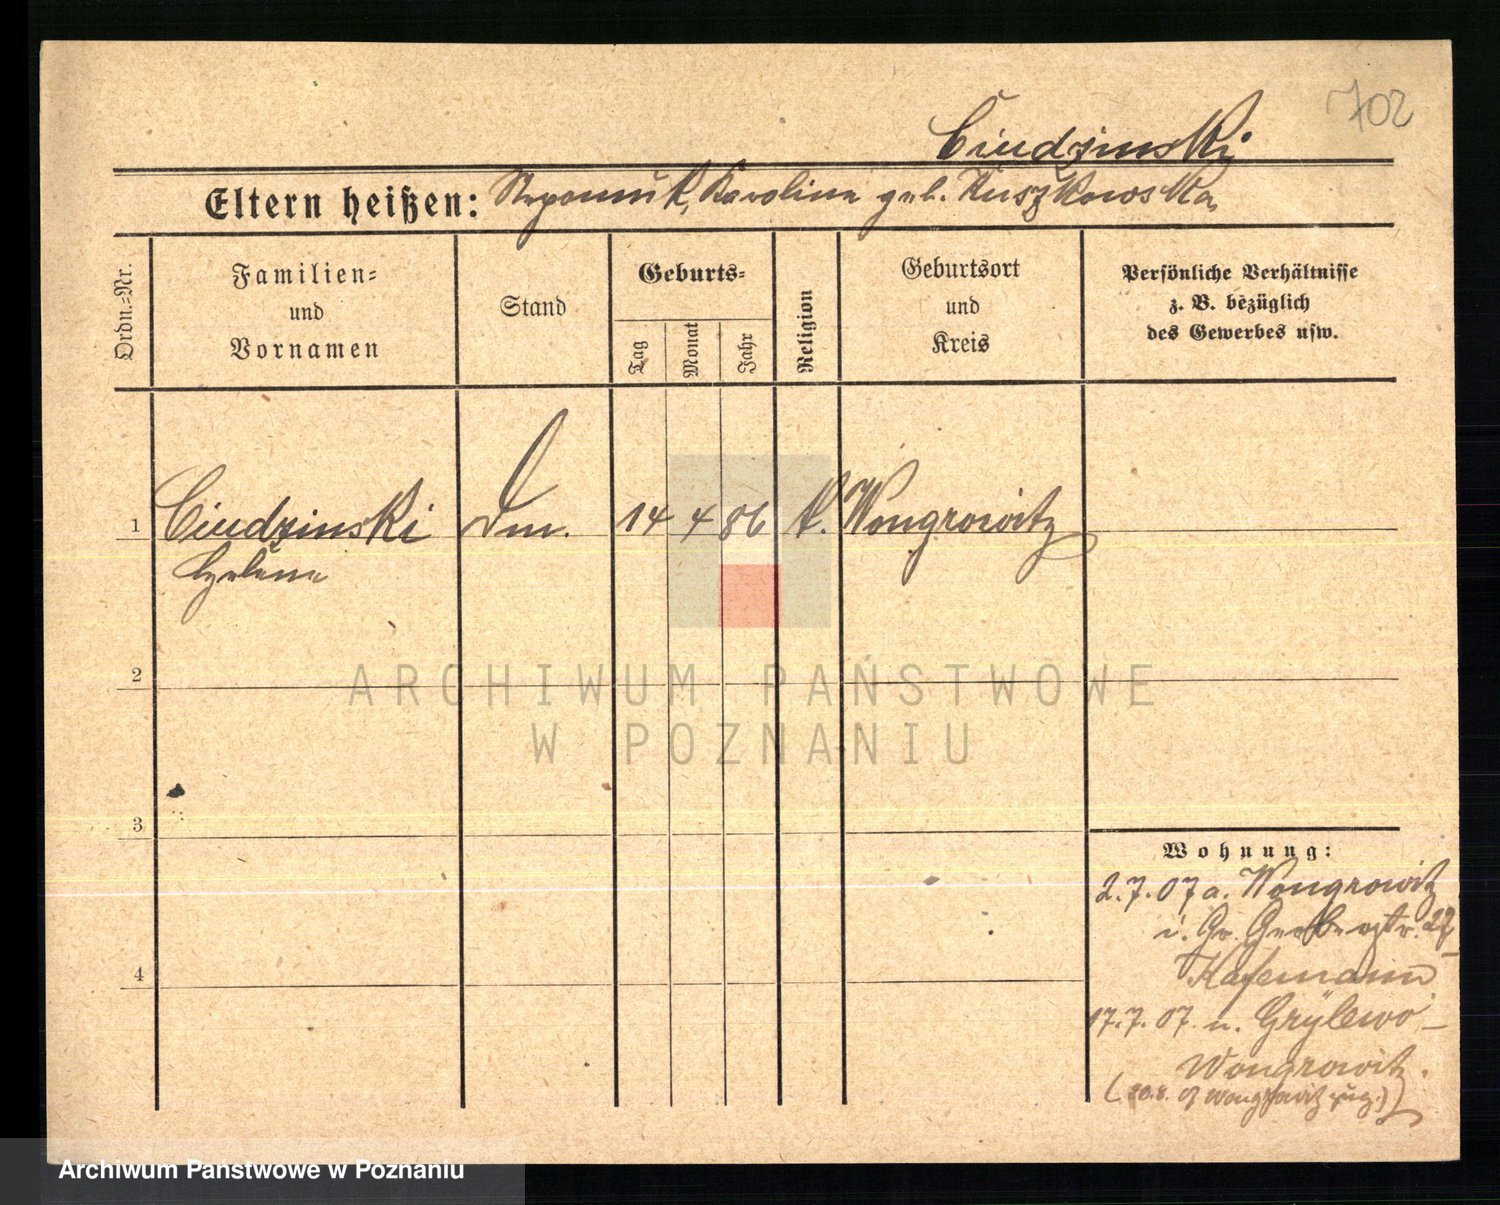 702
Ciudzinski
Eltern heißen: Nepomuk, Karolina geb. Kuszkowska
Ordn.-Nr.
Familien-
und
Vornamen
Stand
Geburts-
Tag
Monat
Jahr
Religion
Geburtsort
und
Kreis
Persönliche Verhältnisse
z. B. bezüglich
des Gewerbes usw.
1 Ciudzinski 14 4 86 k. Wongrowitz
Helene
2
ARCHIWUM PAŃSTWOWE
W POZNANIU
3
Wohnung:
2.7.07 a. Wongrowitz
i. Gr. Gerberstr. 27
Hafemann
17.7.07 n. Grylewo
Wongrowitz.
4
Archiwum Państwowe w Poznaniu